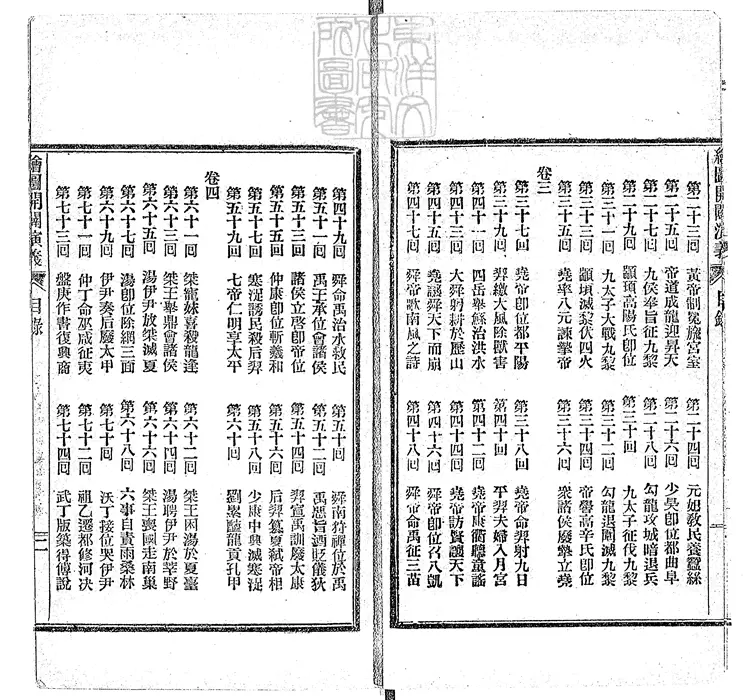 繪圖開闢演義 目錄
第二十三回 黃帝制冕旒宮室 第二十四回 元妃教民養蠶絲
第二十五回 帝道成龍迎昇天 第二十六回 少昊卽位都曲阜
第二十七回 九侯奉旨征九黎 第二十八回 勾龍攻城暗退兵
第二十九回 顓頊高陽氏卽位 第三十回 九太子征伐九黎
第三十一回 九太子大戰九黎 第三十二回 勾龍退圍滅九黎
第三十三回 顓頊滅黎伏四火 第三十四回 帝嚳高辛氏卽位
第三十五回 堯率八元諫摯帝 第三十六回 衆諸侯廢摯立堯
卷三
第三十七回 堯帝卽位都平陽 第三十八回 堯帝命羿射九日
第三十九回 羿繳大風除獸害 第四十回 平羿夫婦入月宮
第四十一回 四岳舉鯀治洪水 第四十二回 堯帝康衢聽童謠
第四十三回 大舜躬耕於歷山 第四十四回 堯帝訪賢讓天下
第四十五回 堯讓舜天下而崩 第四十六回 舜帝卽位召八凱
第四十七回 舜帝歌南風之詩 第四十八回 舜帝命禹征三苗
第四十九回 舜命禹治水救民 第五十回 舜南狩禪位於禹
第五十一回 禹王承位會諸侯 第五十二回 禹惡旨酒貶儀狄
第五十三回 諸侯立啓卽帝位 第五十四回 羿宣禹訓廢太康
第五十五回 仲康卽位斬羲和 第五十六回 后羿篡夏弒帝相
第五十七回 寒浞誘民殺后羿 第五十八回 少康中興滅寒浞
第五十九回 七帝仁明享太平 第六十回 劉累醢龍貢孔甲
卷四
第六十一回 桀寵妹喜殺龍逄 第六十二回 桀王囚湯於夏臺
第六十三回 桀王舉鼎會諸侯 第六十四回 湯聘伊尹於莘野
第六十五回 湯伊尹放桀滅夏 第六十六回 桀王喪國走南巢
第六十七回 湯卽位除網三面 第六十八回 六事自責雨桑林
第六十九回 伊尹奏后廢太甲 第七十回 沃丁接位哭伊尹
第七十一回 仲丁命巫咸征夷 第七十二回 祖乙遷都修河决
第七十三回 盤庚作書復興商 第七十四回 武丁版築得傅說
繪圖開闢演義 目錄 二
東洋文化研究所圖書